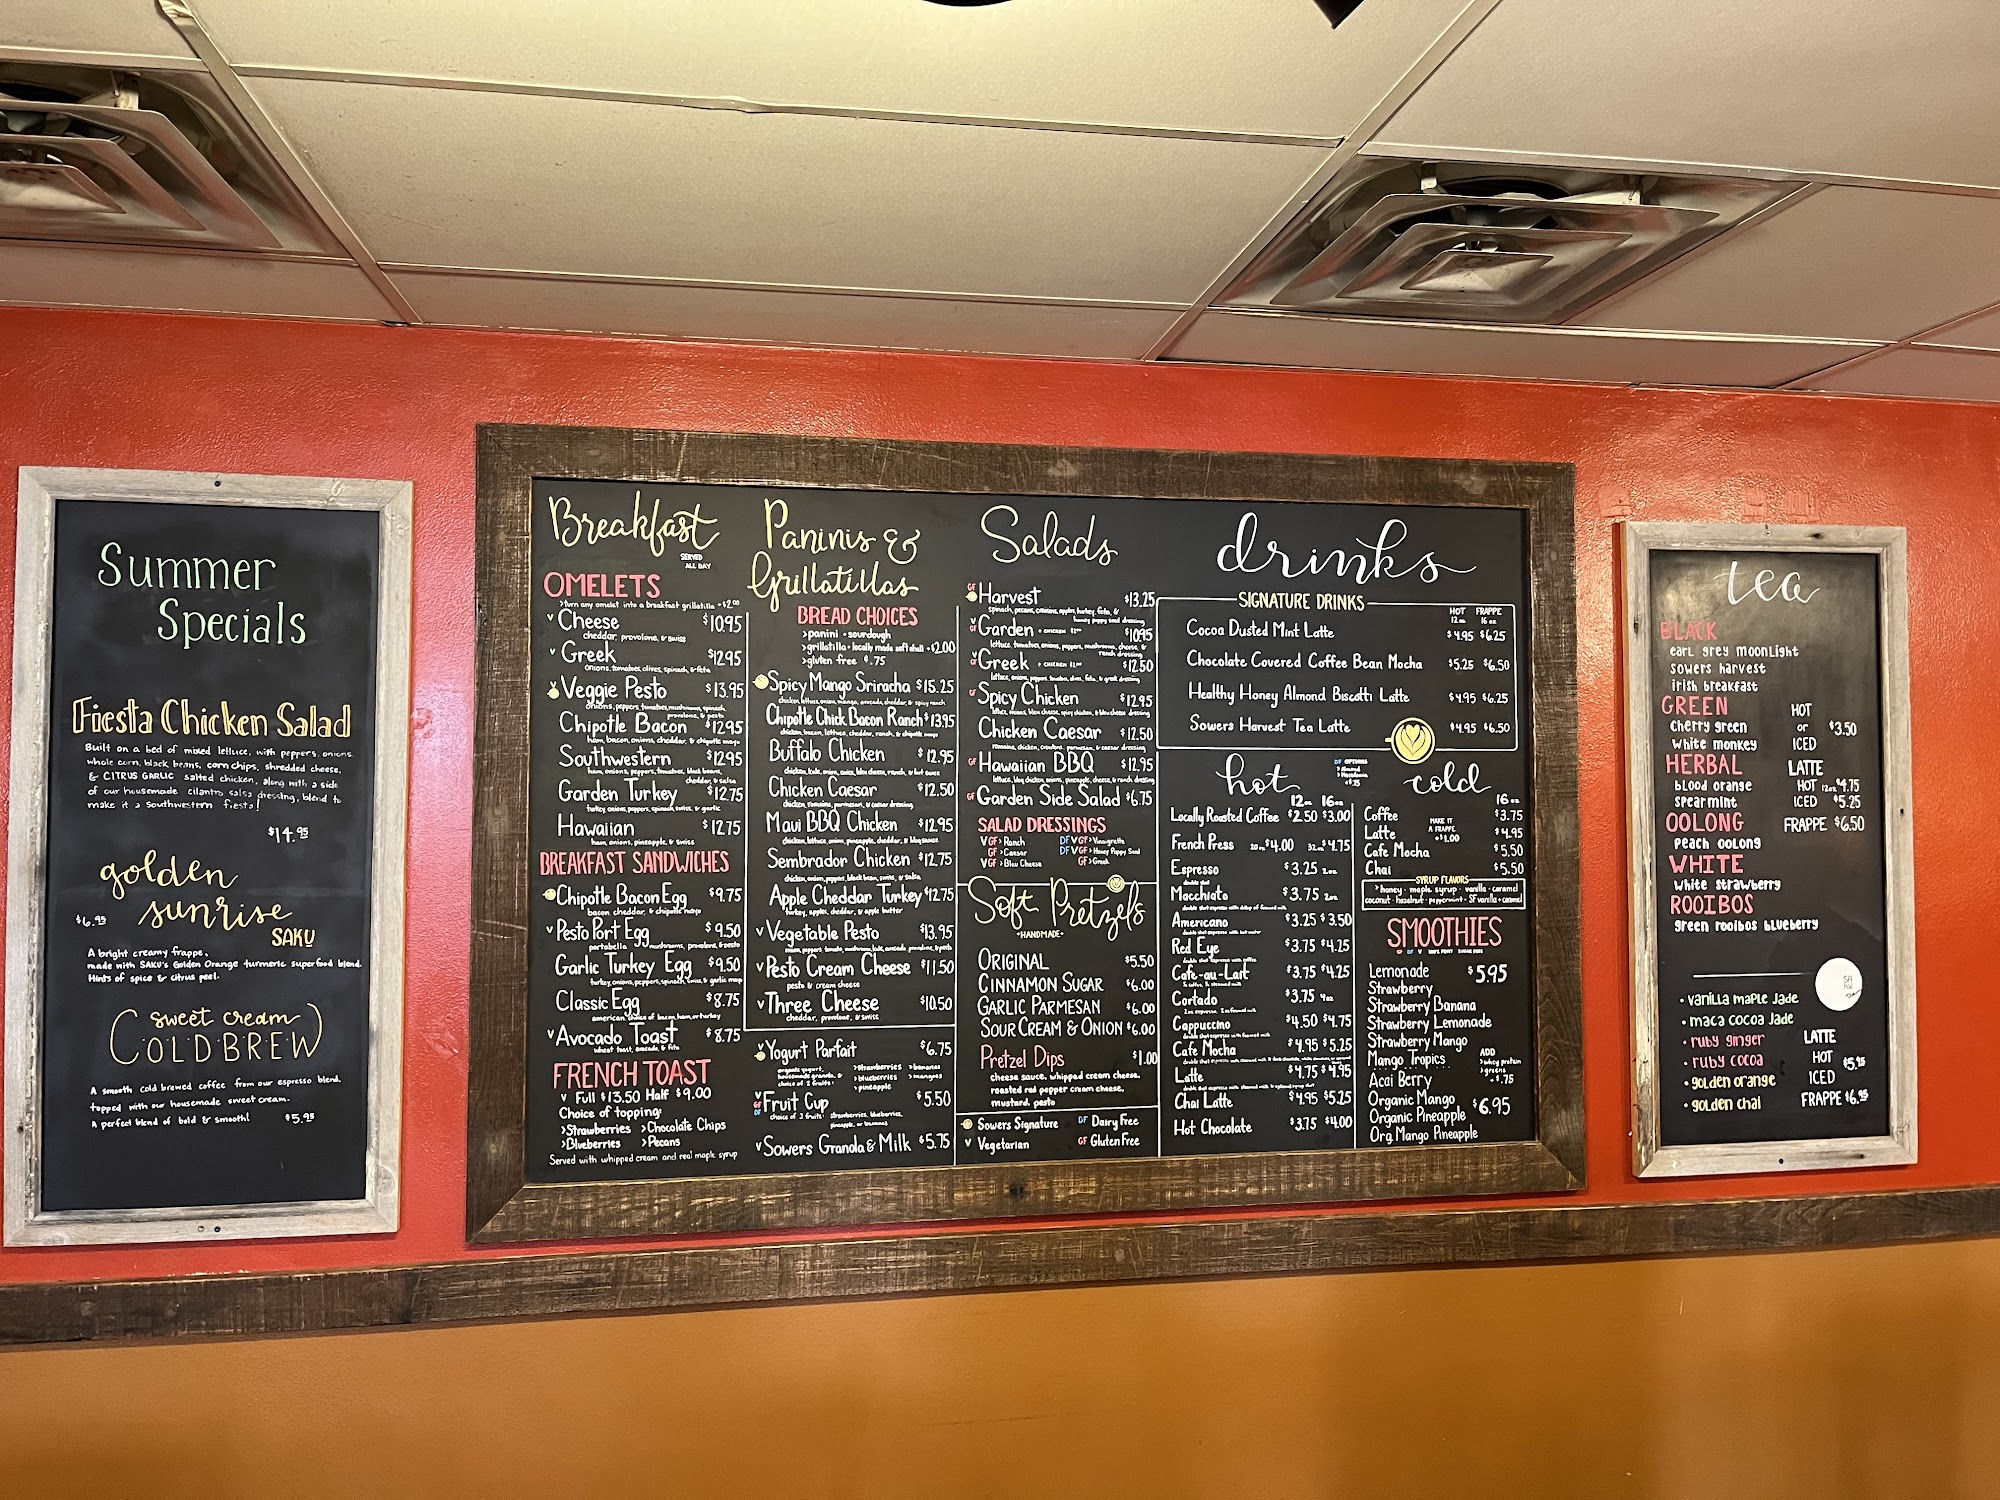 Summer
Specials
Fiesta Chicken Salad
Built on a bed of mixed lettuce, with peppers, onions,
whole corn, black beans, corn chips, shredded cheese,
& CITRUS GARLIC salted chicken, along with a side
of our housemade cilantro salsa dressing, blend to
make it a Southwestern fiesta!
$14.95
golden
sunrise
$6.95
SAKU
A bright creamy frappe,
made with SAKU's Golden Orange turmeric superfood blend.
Hints of spice & citrus peel.
(sweet cream)
COLD BREW
A smooth cold brewed coffee from our espresso blend,
topped with our housemade sweet cream.
A perfect blend of bold & smooth! $5.95
Breakfast
SERVED
ALL DAY
OMELETS
>turn any omelet into a breakfast grillatilla +$2.00
V Cheese $10.95
cheddar, provolone, & swiss
V Greek $12.95
onions, tomatoes, olives, spinach, & feta
V Veggie Pesto $13.95
onions, peppers, tomatoes, mushrooms, spinach,
provolone, & pesto
Chipotle Bacon $12.95
ham, bacon, onions, cheddar, & chipotle mayo
Southwestern $12.95
ham, onions, peppers, tomatoes, black beans,
cheddar, & salsa
Garden Turkey $12.75
turkey, onions, peppers, spinach, swiss, & garlic
Hawaiian $12.75
ham, onions, pineapple, & swiss
BREAKFAST SANDWICHES
Chipotle Bacon Egg $9.75
bacon, cheddar, & chipotle mayo
V Pesto Port Egg $9.50
portabella mushrooms, provolone, & pesto
Garlic Turkey Egg $9.50
turkey, onions, peppers, spinach, swiss, & garlic mayo
Classic Egg $8.75
american, choice of bacon, ham, or turkey
V Avocado Toast $8.75
wheat toast, avocado, & feta
FRENCH TOAST
V Full $13.50 Half $9.00
Choice of topping:
>Strawberries >Chocolate Chips
>Blueberries >Pecans
Served with whipped cream and real maple syrup
Paninis &
Grillatillas
BREAD CHOICES
>panini - sourdough
>grillatilla - locally made soft shell +$2.00
>gluten free +.75
Spicy Mango Sriracha $15.25
chicken, lettuce, onion, mango, avocado, cheddar, & spicy ranch
Chipotle Chick Bacon Ranch $13.95
chicken, bacon, lettuce, cheddar, ranch, & chipotle mayo
Buffalo Chicken $12.95
chicken, kale, onion, swiss, bleu cheese, ranch, & hot sauce
Chicken Caesar $12.50
chicken, romaine, parmesan, & caesar dressing
Maui BBQ Chicken $12.95
chicken, lettuce, onion, pineapple, cheddar, & bbq sauce
Sembrador Chicken $12.75
chicken, onion, pepper, black bean, swiss, & salsa
Apple Cheddar Turkey $12.75
turkey, apples, cheddar, & apple butter
V Vegetable Pesto $13.95
onion, peppers, tomato, mushroom, kale, avocado, provolone, & pesto
V Pesto Cream Cheese $11.50
pesto & cream cheese
V Three Cheese $10.50
cheddar, provolone, & swiss
V Yogurt Parfait $6.75
organic yogurt,
housemade granola, &
choice of 2 fruits:
>strawberries >bananas
>blueberries >mangoes
>pineapple
V GF DF Fruit Cup $5.50
choice of 3 fruits: strawberries, blueberries,
pineapple, or bananas
V Sowers Granola & Milk $5.75
Salads
GF Harvest $13.25
spinach, pecans, craisins, apples, turkey, feta, &
honey poppy seed dressing
V GF Garden + CHICKEN $2.00 $10.95
lettuce, tomatoes, onions, peppers, mushrooms, cheese, &
ranch dressing
V GF Greek + CHICKEN $2.00 $12.50
lettuce, onions, peppers, tomatoes, olives, feta, & greek dressing
GF Spicy Chicken $12.95
lettuce, onions, bleu cheese, spicy chicken, & bleu cheese dressing
Chicken Caesar $12.50
romaine, chicken, croutons, parmesan, & caesar dressing
GF Hawaiian BBQ $12.95
lettuce, bbq chicken, onions, pineapple, cheese, & ranch dressing
GF Garden Side Salad $6.75
SALAD DRESSINGS
V GF> Ranch
GF> Caesar
V GF> Bleu Cheese
DF V GF> Vinaigrette
DF V GF> Honey Poppy Seed
GF> Greek
Soft Pretzels
-HANDMADE-
ORIGINAL $5.50
CINNAMON SUGAR $6.00
GARLIC PARMESAN $6.00
SOUR CREAM & ONION $6.00
Pretzel Dips $1.00
cheese sauce, whipped cream cheese,
roasted red pepper cream cheese,
mustard, pesto
Sowers Signature DF Dairy Free
V Vegetarian GF Gluten Free
drinks
SIGNATURE DRINKS
HOT FRAPPE
12 oz 16 oz
Cocoa Dusted Mint Latte $4.95 $6.25
Chocolate Covered Coffee Bean Mocha $5.25 $6.50
Healthy Honey Almond Biscotti Latte $4.95 $6.25
Sowers Harvest Tea Latte $4.95 $6.50
hot
DF OPTIONS
>Almond
>Macadamia
+$.75
12 oz 16 oz
Locally Roasted Coffee $2.50 $3.00
French Press 20 oz $4.00 32 oz $4.75
Espresso $3.25 2 oz
double shot
Macchiato $3.75 2 oz
double shot espresso with dollop of foamed milk
Americano $3.25 $3.50
double shot espresso with hot water
Red Eye $3.75 $4.25
double shot espresso with coffee
Cafe-au-Lait $3.75 $4.25
½ coffee, ½ steamed milk
Cortado $3.75 4 oz
2 oz espresso, 2 oz foamed milk
Cappuccino $4.50 $4.75
double shot espresso with foamed milk
Cafe Mocha $4.95 $5.25
Latte $4.75 $4.95
Chai Latte $4.95 $5.25
Hot Chocolate $3.75 $4.00
cold
16 oz
Coffee $3.75
Latte $4.95
Cafe Mocha $5.50
Chai $5.50
MAKE IT
A FRAPPE
+$1.00
SYRUP FLAVORS
>honey - maple syrup - vanilla - caramel
coconut - hazelnut - peppermint - SF vanilla + caramel
SMOOTHIES
GF DF V 100% FRUIT SUGAR FREE
Lemonade $5.95
Strawberry
Strawberry Banana
Strawberry Lemonade
Strawberry Mango
Mango Tropics
ADD
>whey protein
>greens
+$.75
Acai Berry
Organic Mango $6.95
Organic Pineapple
Org Mango Pineapple
tea
BLACK
earl grey moonlight
sowers harvest
irish breakfast
GREEN
cherry green
white monkey
HERBAL
blood orange
spearmint
OOLONG
peach oolong
WHITE
white strawberry
ROOIBOS
green rooibos blueberry
HOT
or $3.50
ICED
LATTE
HOT 12oz $4.75
ICED $5.25
FRAPPE $6.50
SA
KU
• vanilla maple jade
• maca cocoa jade
• ruby ginger
• ruby cocoa
• golden orange
• golden chai
LATTE
HOT $5.95
ICED
FRAPPE $6.95